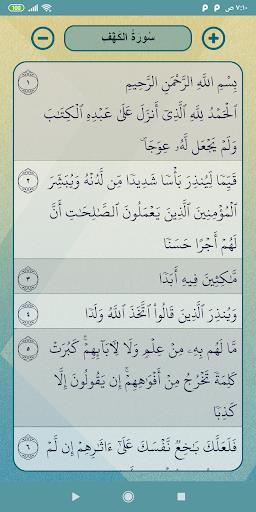 100
٧:١٠ ص
سُورَةُ الكَهْف
بِسْمِ اللَّهِ الرَّحْمَٰنِ الرَّحِيمِ
١
الْحَمْدُ لِلَّهِ الَّذِي أَنزَلَ عَلَىٰ عَبْدِهِ الْكِتَابَ
وَلَمْ يَجْعَل لَّهُ عِوَجًا ۜ
٢
قَيِّمًا لِّيُنذِرَ بَأْسًا شَدِيدًا مِّن لَّدُنْهُ وَيُبَشِّرَ
الْمُؤْمِنِينَ الَّذِينَ يَعْمَلُونَ الصَّالِحَاتِ أَنَّ
لَهُمْ أَجْرًا حَسَنًا
٣
مَّاكِثِينَ فِيهِ أَبَدًا
٤
وَيُنذِرَ الَّذِينَ قَالُوا اتَّخَذَ اللَّهُ وَلَدًا
٥
مَّا لَهُم بِهِ مِنْ عِلْمٍ وَلَا لِآبَائِهِمْ ۚ كَبُرَتْ
كَلِمَةً تَخْرُجُ مِنْ أَفْوَاهِهِمْ ۚ إِن يَقُولُونَ إِلَّا
كَذِبًا
٦
فَلَعَلَّكَ بَاخِعٌ نَّفْسَكَ عَلَىٰ آثَارِهِمْ إِن لَّمْ